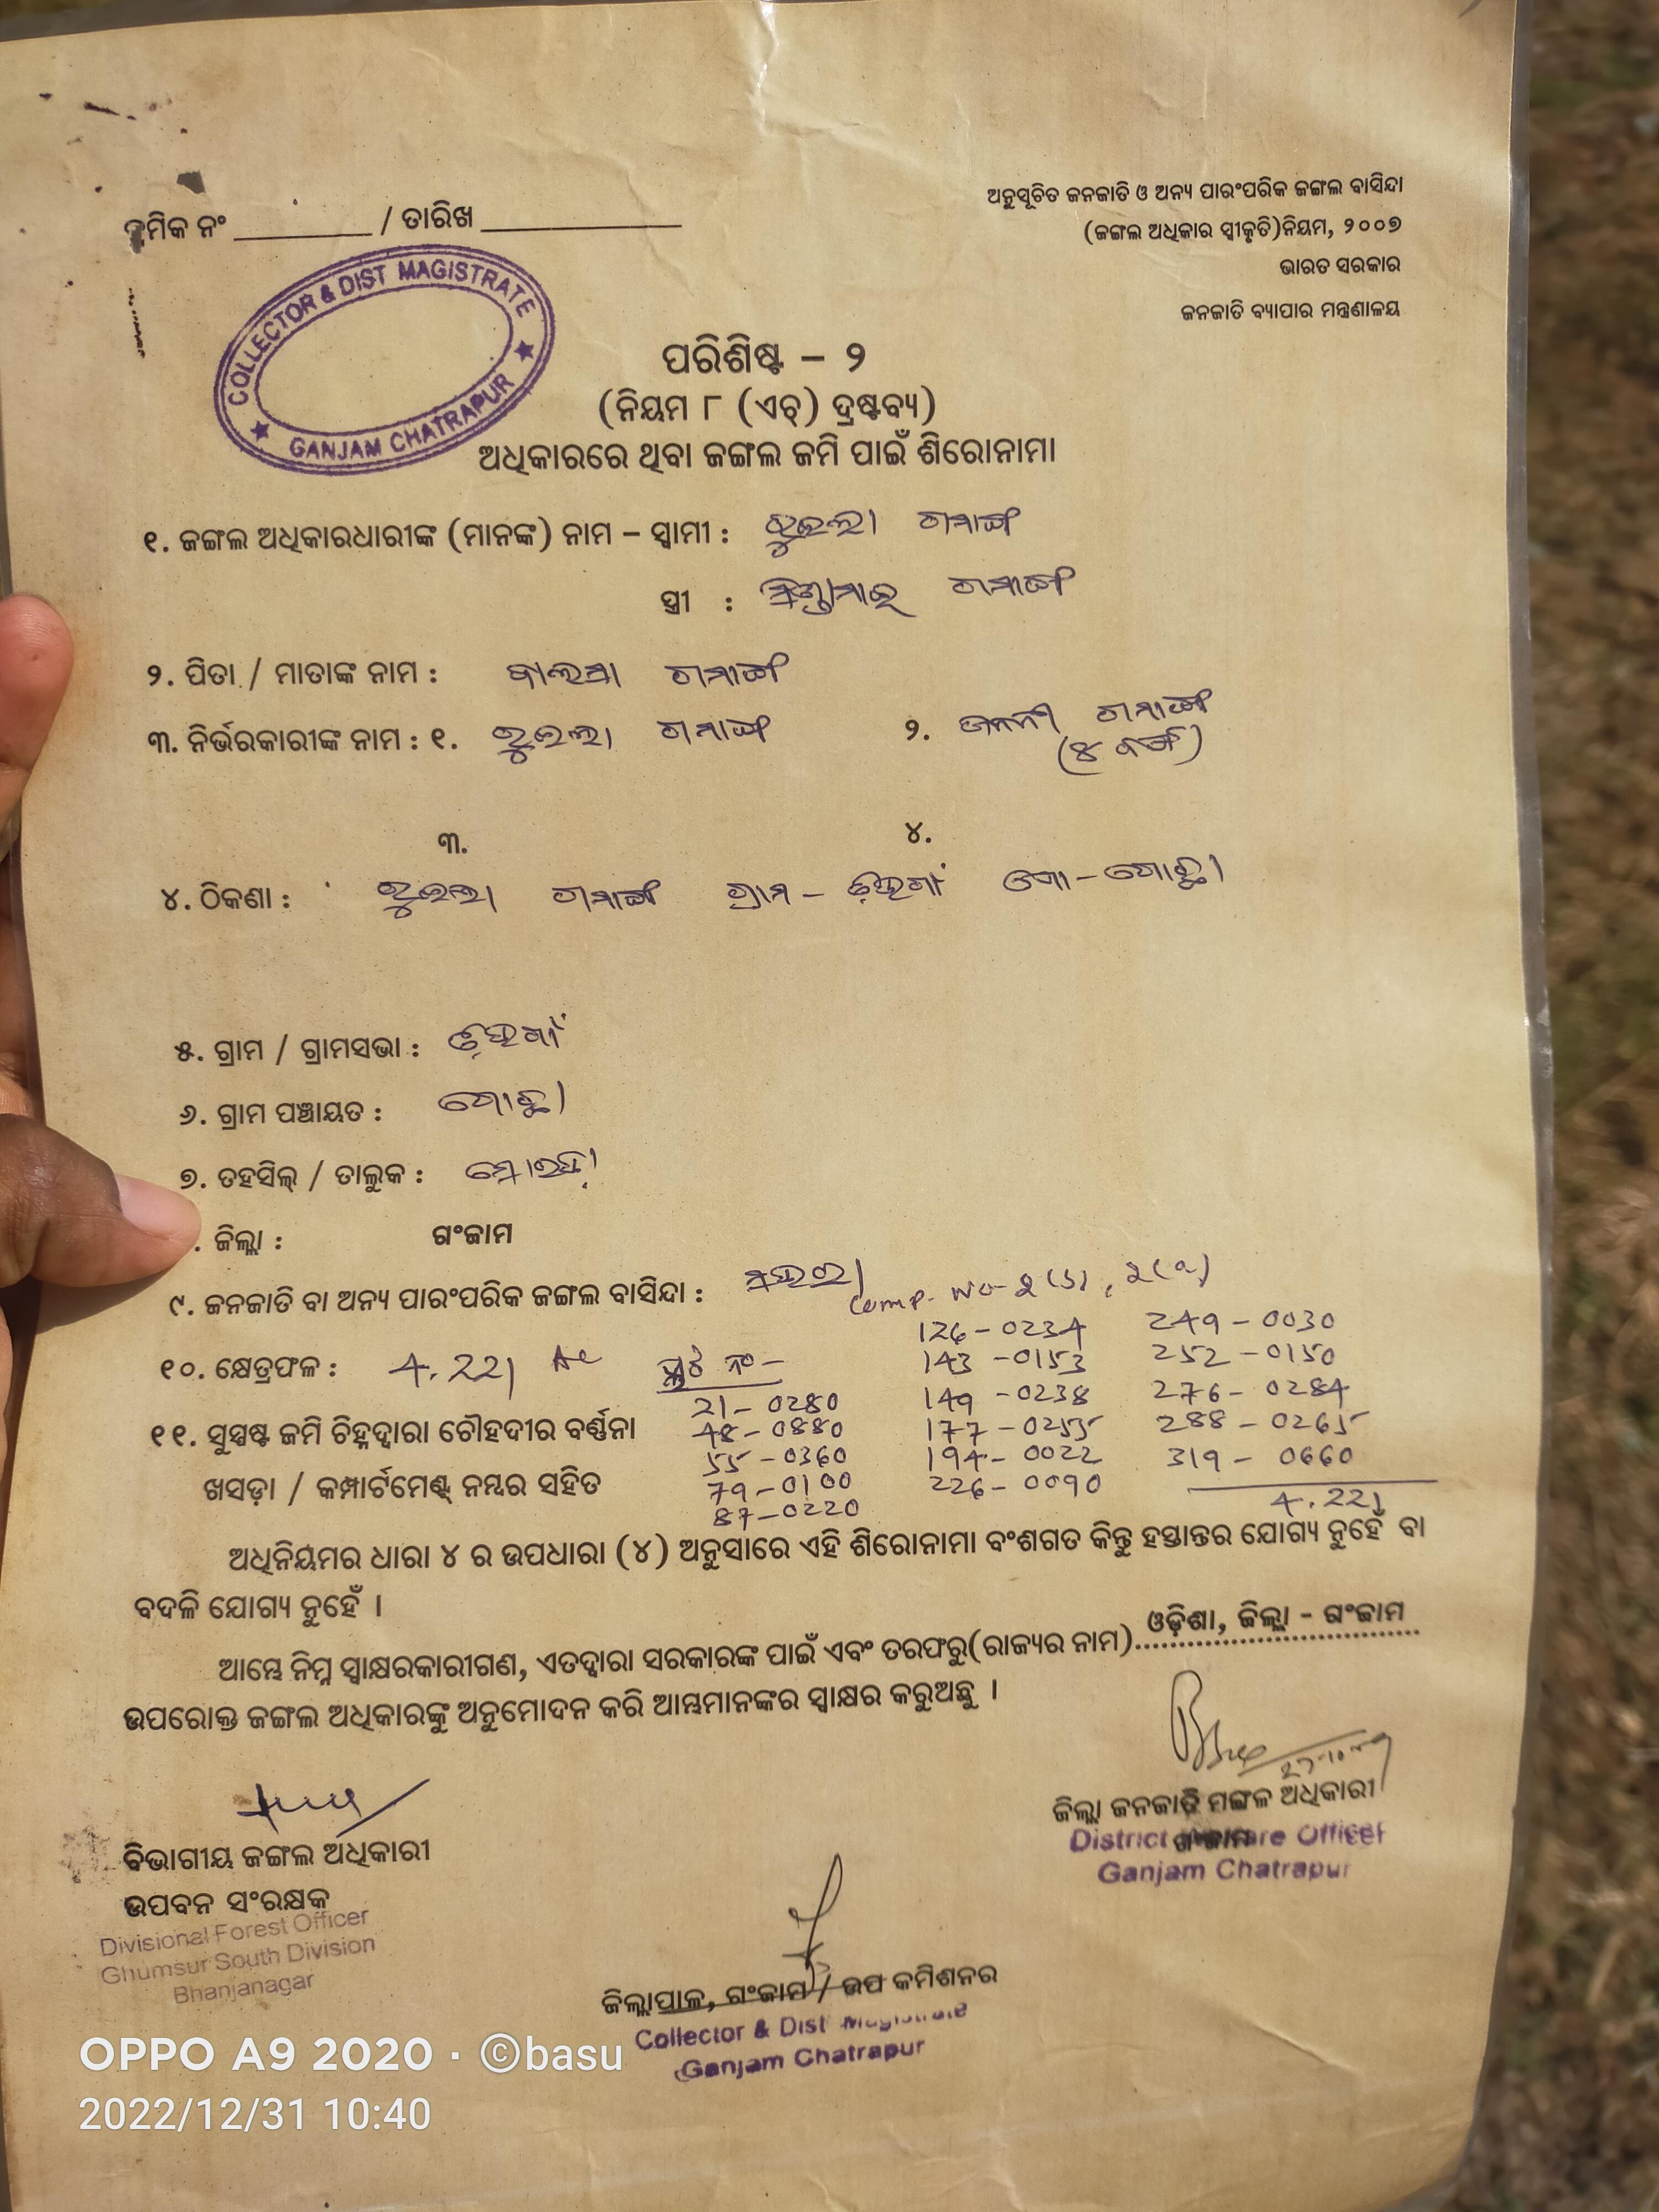 କ୍ରମିକ ନଂ ________ / ତାରିଖ ____________
ଅନୁସୂଚିତ ଜନଜାତି ଓ ଅନ୍ୟ ପାରଂପରିକ ଜଙ୍ଗଲ ବାସିନ୍ଦା
(ଜଙ୍ଗଲ ଅଧିକାର ସ୍ୱୀକୃତି)ନିୟମ, ୨୦୦୭
ଭାରତ ସରକାର
ଜନଜାତି ବ୍ୟାପାର ମନ୍ତ୍ରଣାଳୟ
COLLECTOR & DIST MAGISTRATE
GANJAM CHATRAPUR
ପରିଶିଷ୍ଟ – ୨
(ନିୟମ ୮ (ଏଚ୍) ଦ୍ରଷ୍ଟବ୍ୟ)
ଅଧିକାରରେ ଥିବା ଜଙ୍ଗଲ ଜମି ପାଇଁ ଶିରୋନାମା
୧. ଜଙ୍ଗଲ ଅଧିକାରଧାରୀଙ୍କ (ମାନଙ୍କ) ନାମ – ସ୍ୱାମୀ :
ସ୍ତ୍ରୀ :
୨. ପିତା / ମାତାଙ୍କ ନାମ :
୩. ନିର୍ଭରକାରୀଙ୍କ ନାମ : ୧. ୨.
୩. ୪.
୪. ଠିକଣା : ଗ୍ରାମ –
୫. ଗ୍ରାମ / ଗ୍ରାମସଭା :
୬. ଗ୍ରାମ ପଞ୍ଚାୟତ :
୭. ତହସିଲ୍ / ତାଲୁକ :
. ଜିଲ୍ଲା : ଗଂଜାମ
୯. ଜନଜାତି ବା ଅନ୍ୟ ପାରଂପରିକ ଜଙ୍ଗଲ ବାସିନ୍ଦା :
Comp. No-
୧୦. କ୍ଷେତ୍ରଫଳ : 4.221 Ac ପ୍ଲଟ ନଂ –
126 – 0234 249 – 0030
143 – 0153 252 – 0150
21 – 0280 149 – 0238 276 – 0284
୧୧. ସୁସ୍ପଷ୍ଟ ଜମି ଚିହ୍ନଦ୍ୱାରା ଚୌହଦୀର ବର୍ଣ୍ଣନା 48 – 0880 177 – 0255 288 – 0265
55 – 0360 194 – 0022 319 – 0660
ଖସଡ଼ା / କମ୍ପାର୍ଟମେଣ୍ଟ୍ ନମ୍ବର ସହିତ 79 – 0100 226 – 0090
87 – 0220 4.221
ଅଧିନିୟମର ଧାରା ୪ ର ଉପଧାରା (୪) ଅନୁସାରେ ଏହି ଶିରୋନାମା ବଂଶଗତ କିନ୍ତୁ ହସ୍ତାନ୍ତର ଯୋଗ୍ୟ ନୁହେଁ ବା
ବଦଳି ଯୋଗ୍ୟ ନୁହେଁ ।
ଆମ୍ଭେ ନିମ୍ନ ସ୍ୱାକ୍ଷରକାରୀଗଣ, ଏତଦ୍ୱାରା ସରକାରଙ୍କ ପାଇଁ ଏବଂ ତରଫରୁ(ରାଜ୍ୟର ନାମ) ଓଡ଼ିଶା, ଜିଲ୍ଲା - ଗଂଜାମ
ଉପରୋକ୍ତ ଜଙ୍ଗଲ ଅଧିକାରଙ୍କୁ ଅନୁମୋଦନ କରି ଆମ୍ଭମାନଙ୍କର ସ୍ୱାକ୍ଷର କରୁଅଛୁ ।
ଜିଲ୍ଲା ଜନଜାତି ମଙ୍ଗଳ ଅଧିକାରୀ
ଗଂଜାମ
District Welfare Officer
Ganjam Chatrapur
ବିଭାଗୀୟ ଜଙ୍ଗଲ ଅଧିକାରୀ
ଉପବନ ସଂରକ୍ଷକ
Divisional Forest Officer
Ghumsur South Division
Bhanjanagar
ଜିଲ୍ଲାପାଳ, ଗଂଜାମ / ଉପ କମିଶନର
Collector & Dist Magistrate
Ganjam Chatrapur
OPPO A9 2020 · ©basu
2022/12/31 10:40